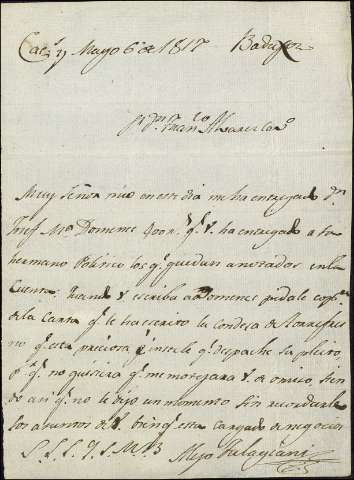 Cac.s y Mayo 6 de 1817 Badajoz
S.r D.n Fran.co Alvarez
Muy Señor mio en este dia me ha entregado D.n
Josef M.a Domenec 400 r.s q.e V. ha entregado a su
hermano Politico los q.e quedan anotados en la
Cuenta. Quando V. escriba a Domenec pidale copia
de la Carta q.e le ha escrito la condesa de
no q.e esta preciosa q.e despache su pleito,
p.r q.e no quisiera q.e me motejara V. de omiso sien
do asi q.e no le dejo un momento sin recordarle
los asuntos de V. bien q.e esta cargado de negocios
S. S. S. Q. S. M. B
Alejo Palagiani